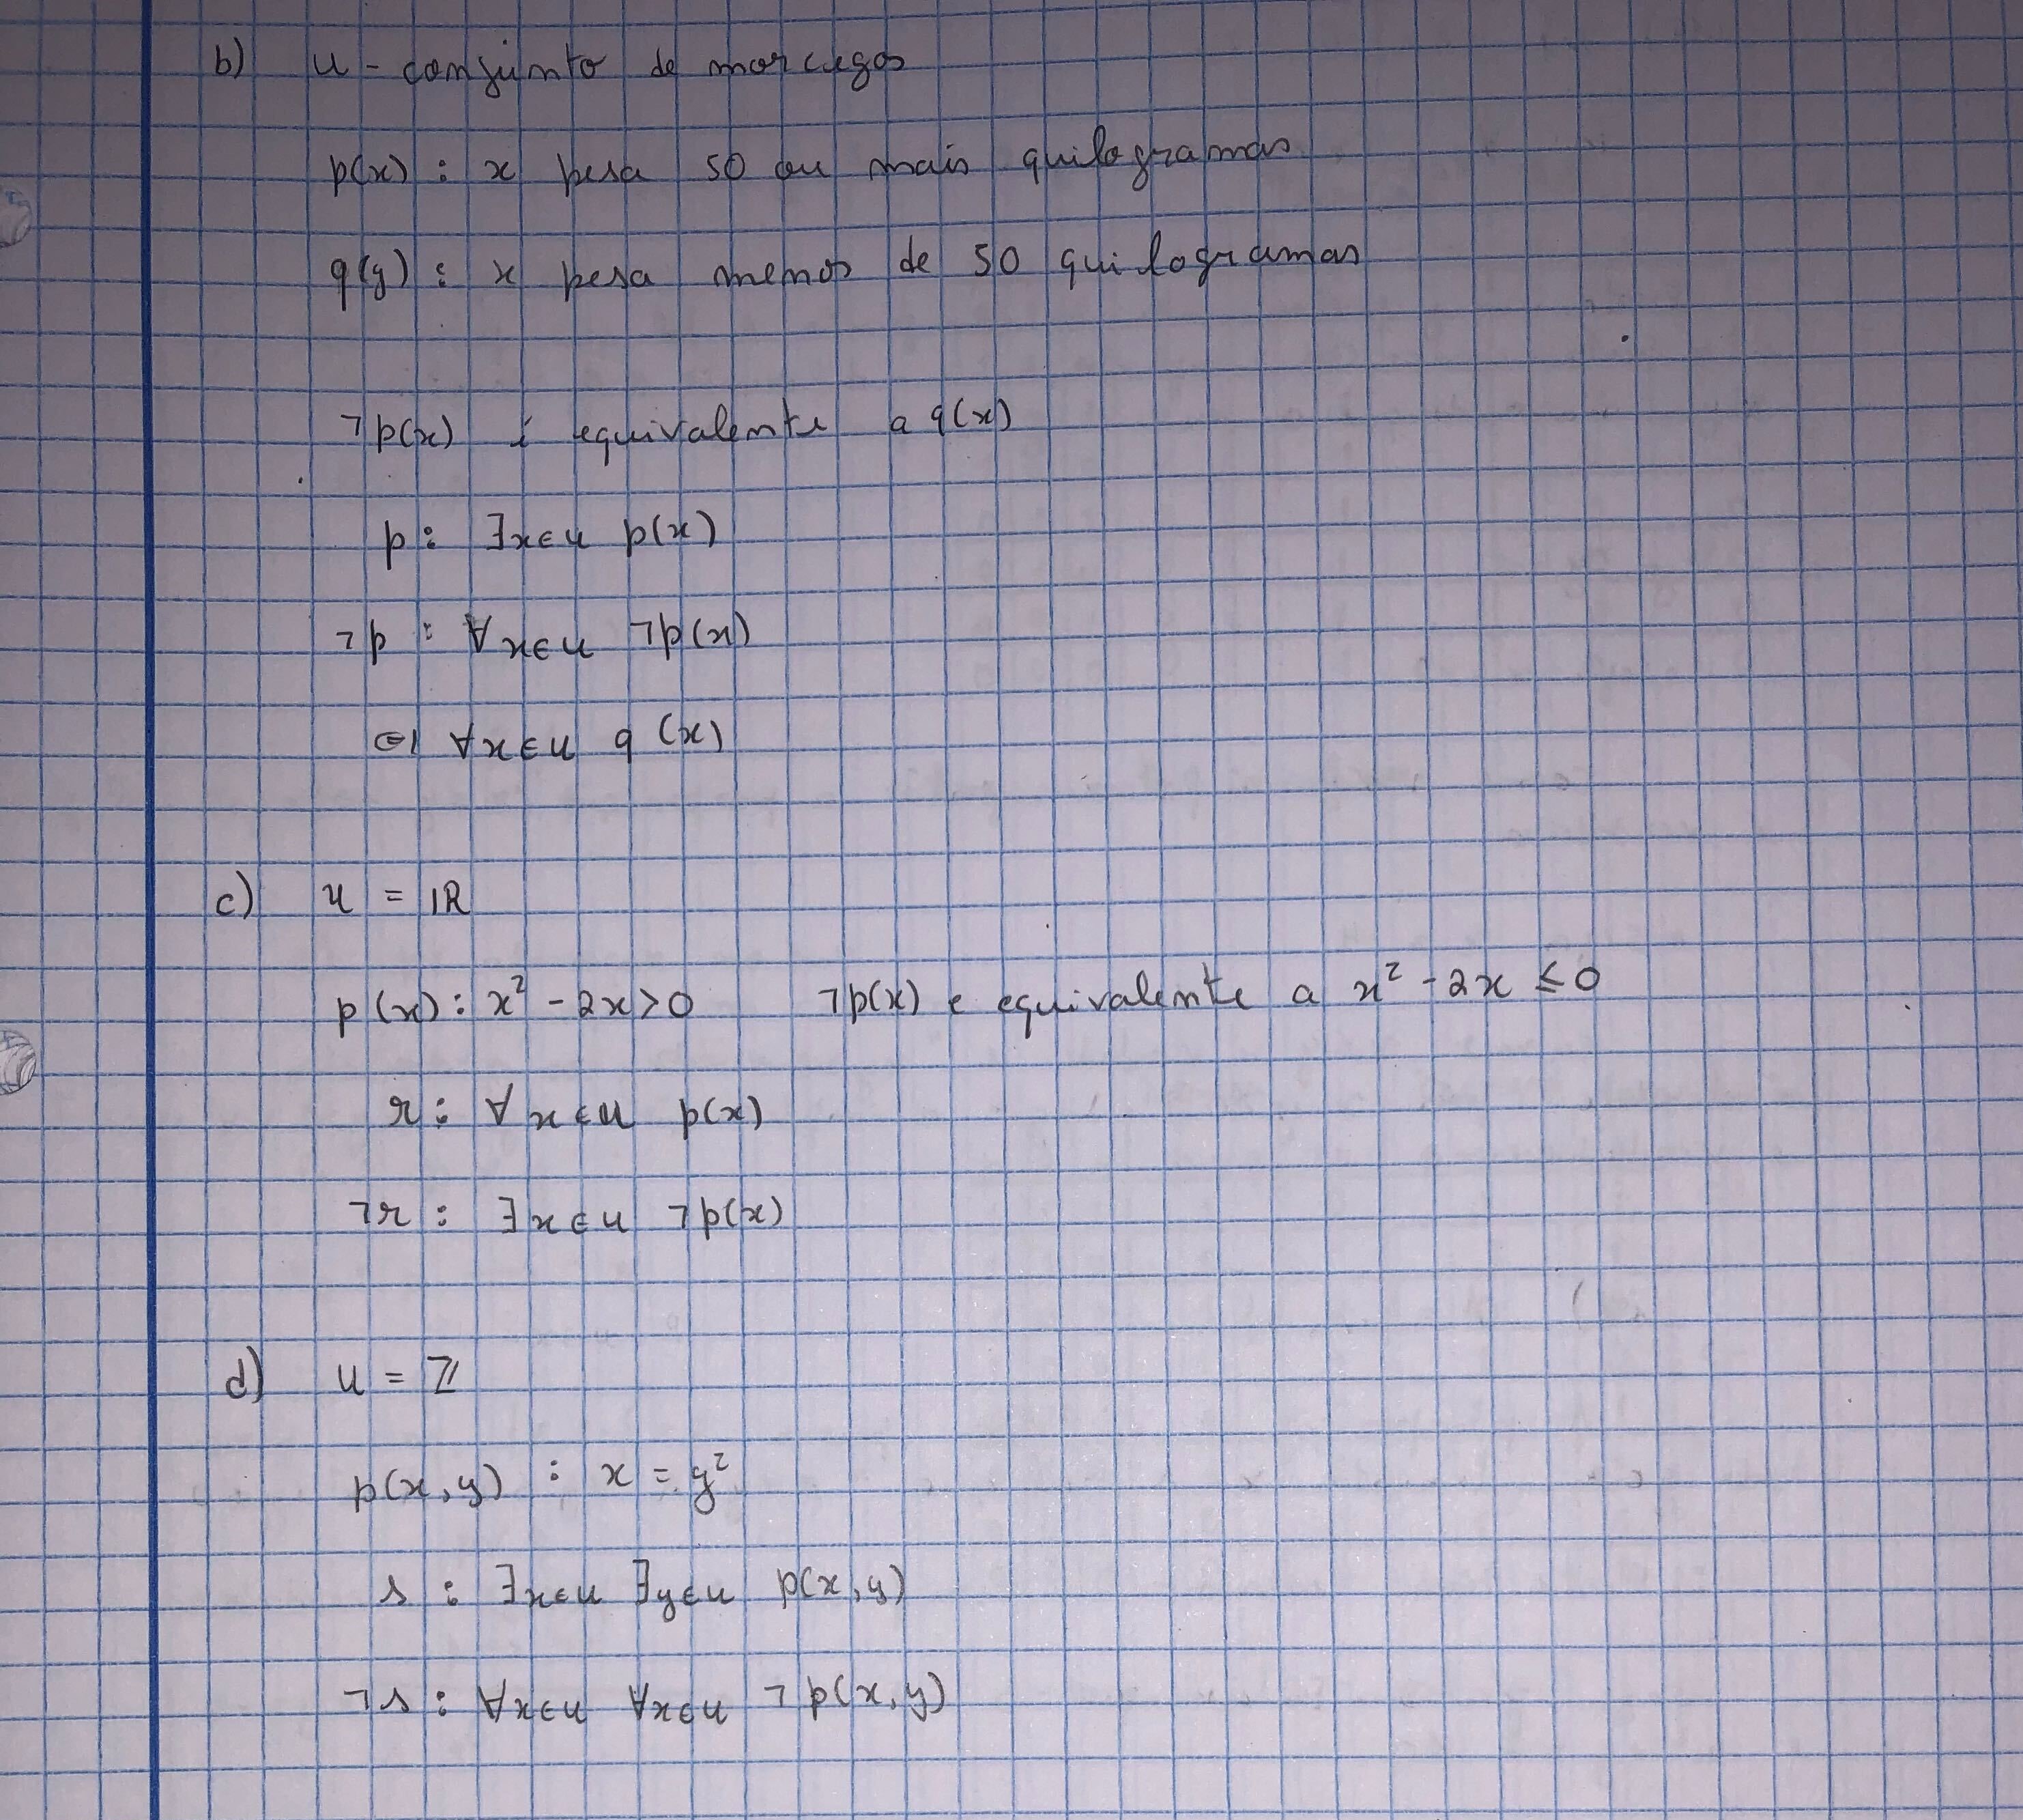 b) U - conjunto de morcegos
p(x) : x pesa 50 ou mais quilogramas
q(y) : x pesa menos de 50 quilogramas
¬p(x) é equivalente a q(x)
p : ∃x∈U p(x)
¬p : ∀x∈U ¬p(x)
⇔ ∀x∈U q(x)
c) U = ℝ
p(x) : x² - 2x > 0 ¬p(x) e equivalente a x² - 2x ≤ 0
r : ∀x∈U p(x)
¬r : ∃x∈U ¬p(x)
d) U = ℤ
p(x,y) : x = y²
s : ∃x∈U ∃y∈U p(x,y)
¬s : ∀x∈U ∀x∈U ¬p(x,y)